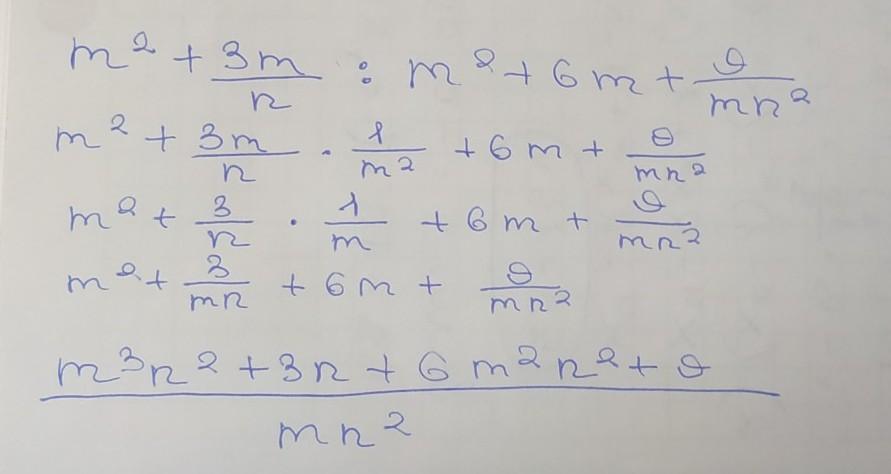 m² + 3m/n : m² + 6m + 9/mn²
m² + 3m/n · 1/m² + 6m + 9/mn²
m² + 3/n · 1/m + 6m + 9/mn²
m² + 3/mn + 6m + 9/mn²
m³n² + 3n + 6m²n² + 9
mn²